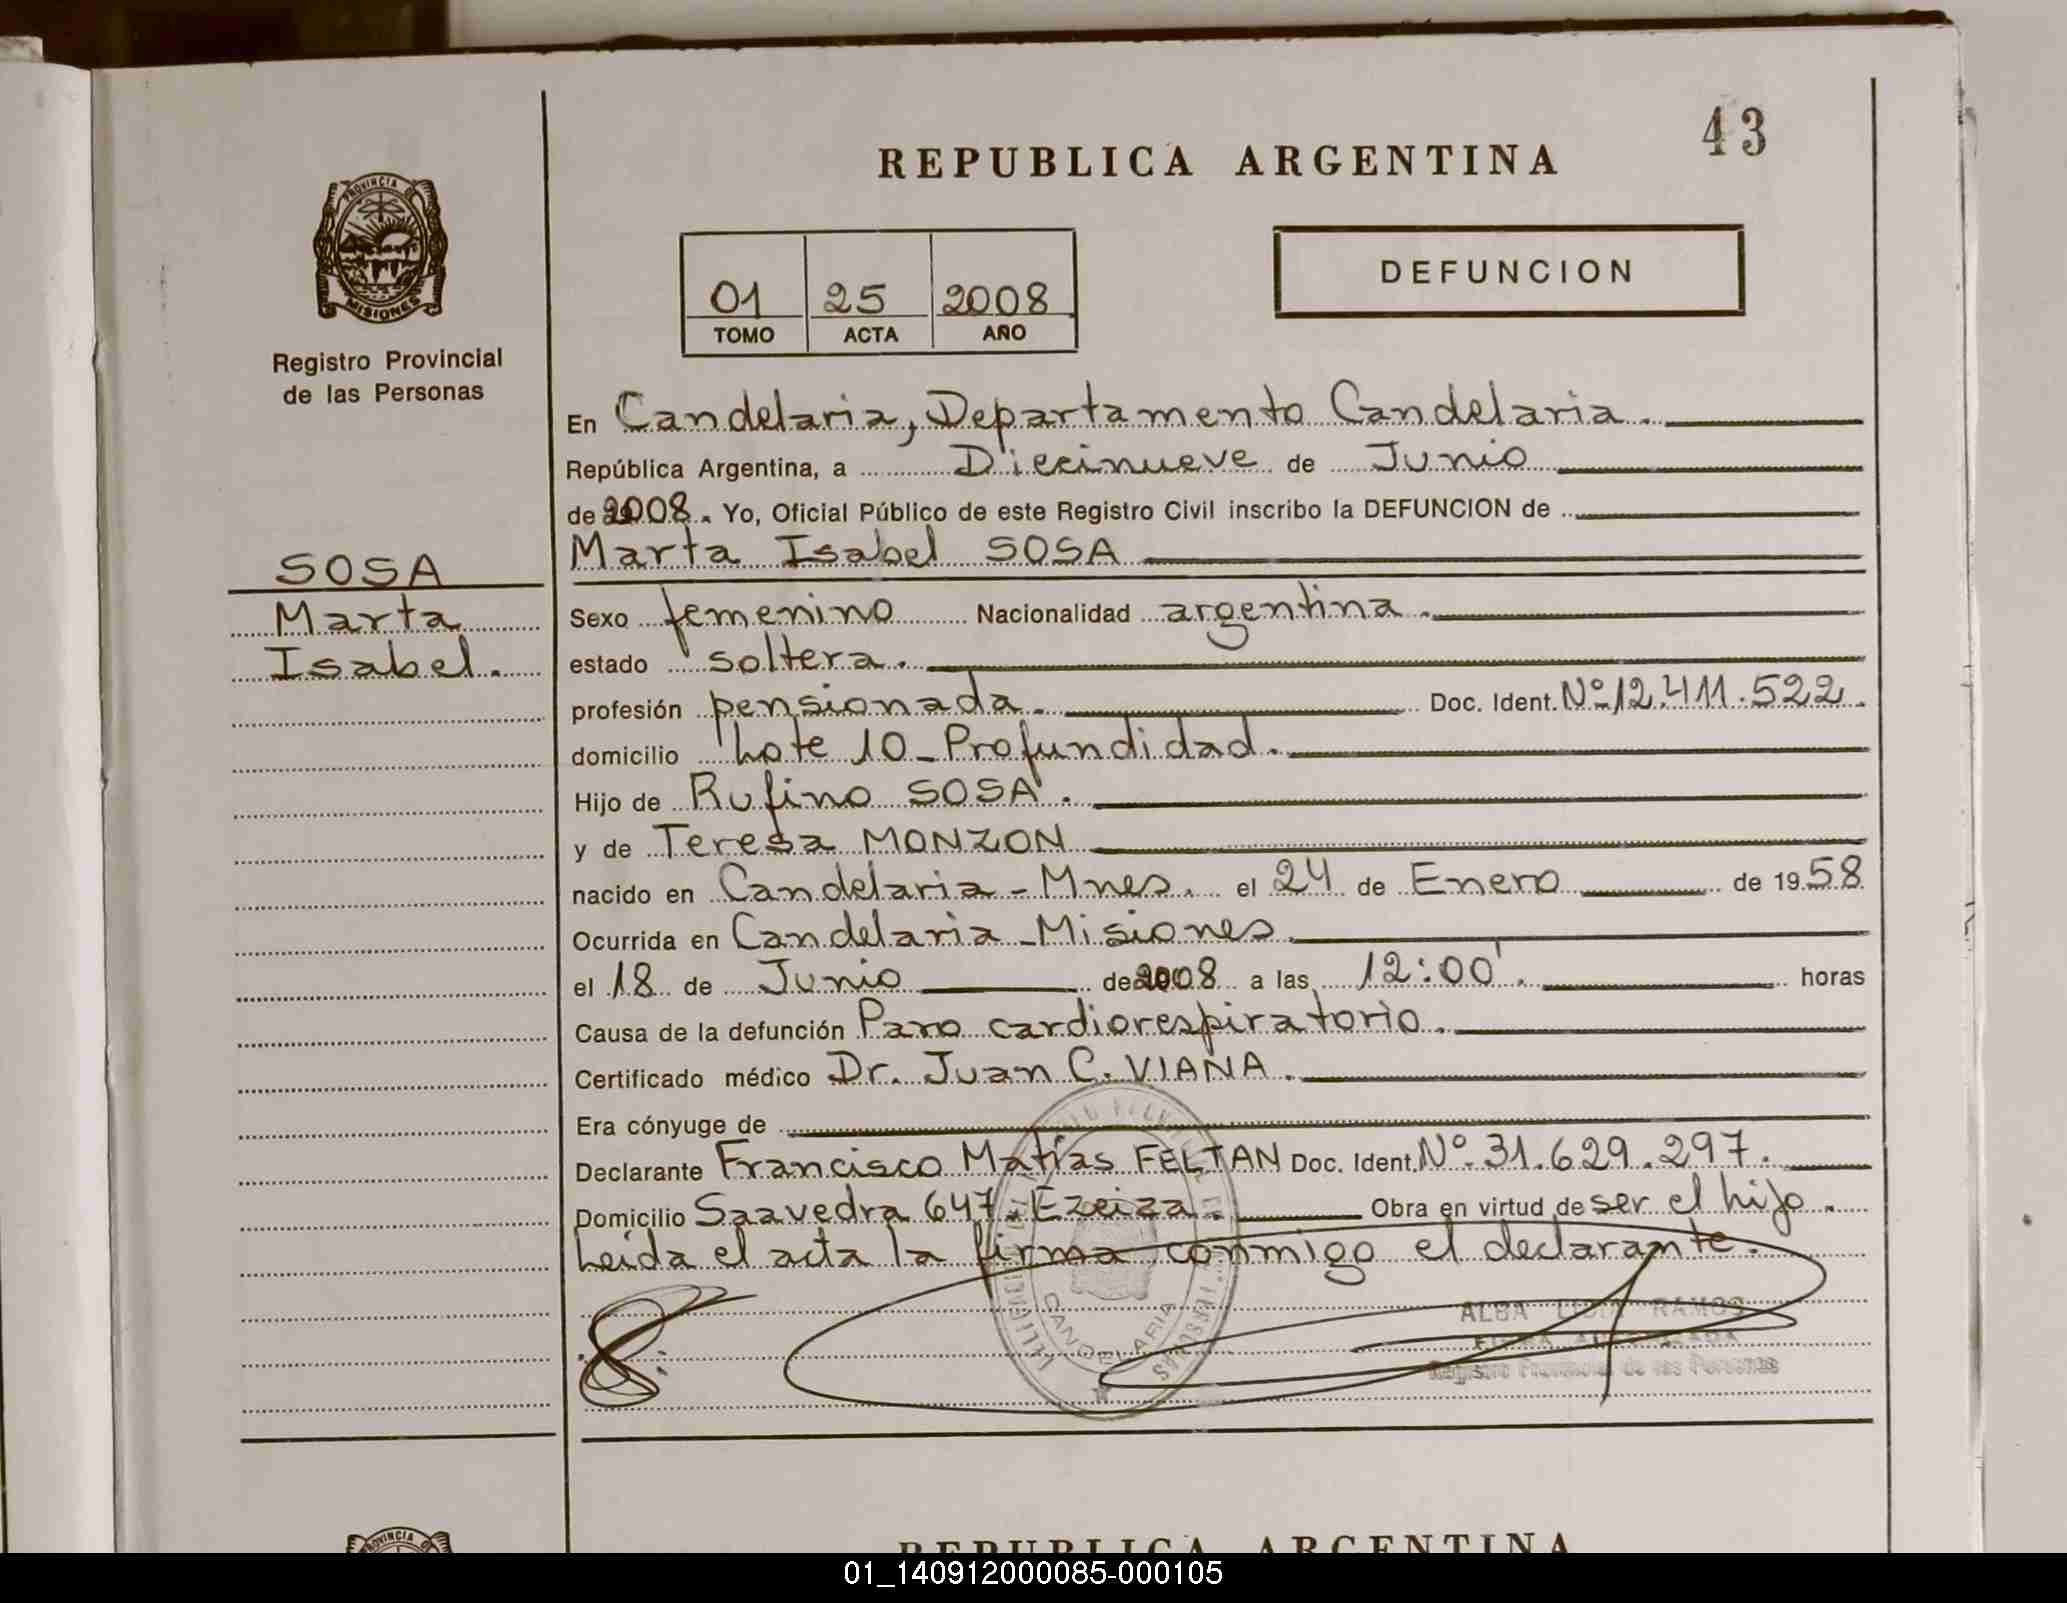 43
REPUBLICA ARGENTINA
PROVINCIA D
MISIONES
01 25 2008
TOMO ACTA AÑO
DEFUNCION
Registro Provincial
de las Personas
SOSA
Marta
Isabel.
En Candelaria, Departamento Candelaria.
República Argentina, a Diecinueve de Junio
de 2008. Yo, Oficial Público de este Registro Civil inscribo la DEFUNCION de
Marta Isabel SOSA
Sexo femenino Nacionalidad argentina.
estado soltera.
profesión pensionada. Doc. Ident. Nº 12.411.522.
domicilio Lote 10-Profundidad.
Hijo de Rufino SOSA.
y de Teresa MONZON
nacido en Candelaria - Mnes. el 24 de Enero de 1958
Ocurrida en Candelaria - Misiones
el 18 de Junio de 2008 a las 12:00'. horas
Causa de la defunción Paro cardiorespiratorio.
Certificado médico Dr. Juan C. VIANA.
Era cónyuge de
Declarante Francisco Matías FELTAN Doc. Ident. Nº 31.629.297.
Domicilio Saavedra 647. Ezeiza. Obra en virtud de ser el hijo.
Leída el acta la firma conmigo el declarante.
CANDELARIA
ALBA RAMOS
Registro Provincial de las Personas
PROVINCIA D
REPUBLICA ARGENTINA
01_140912000085-000105